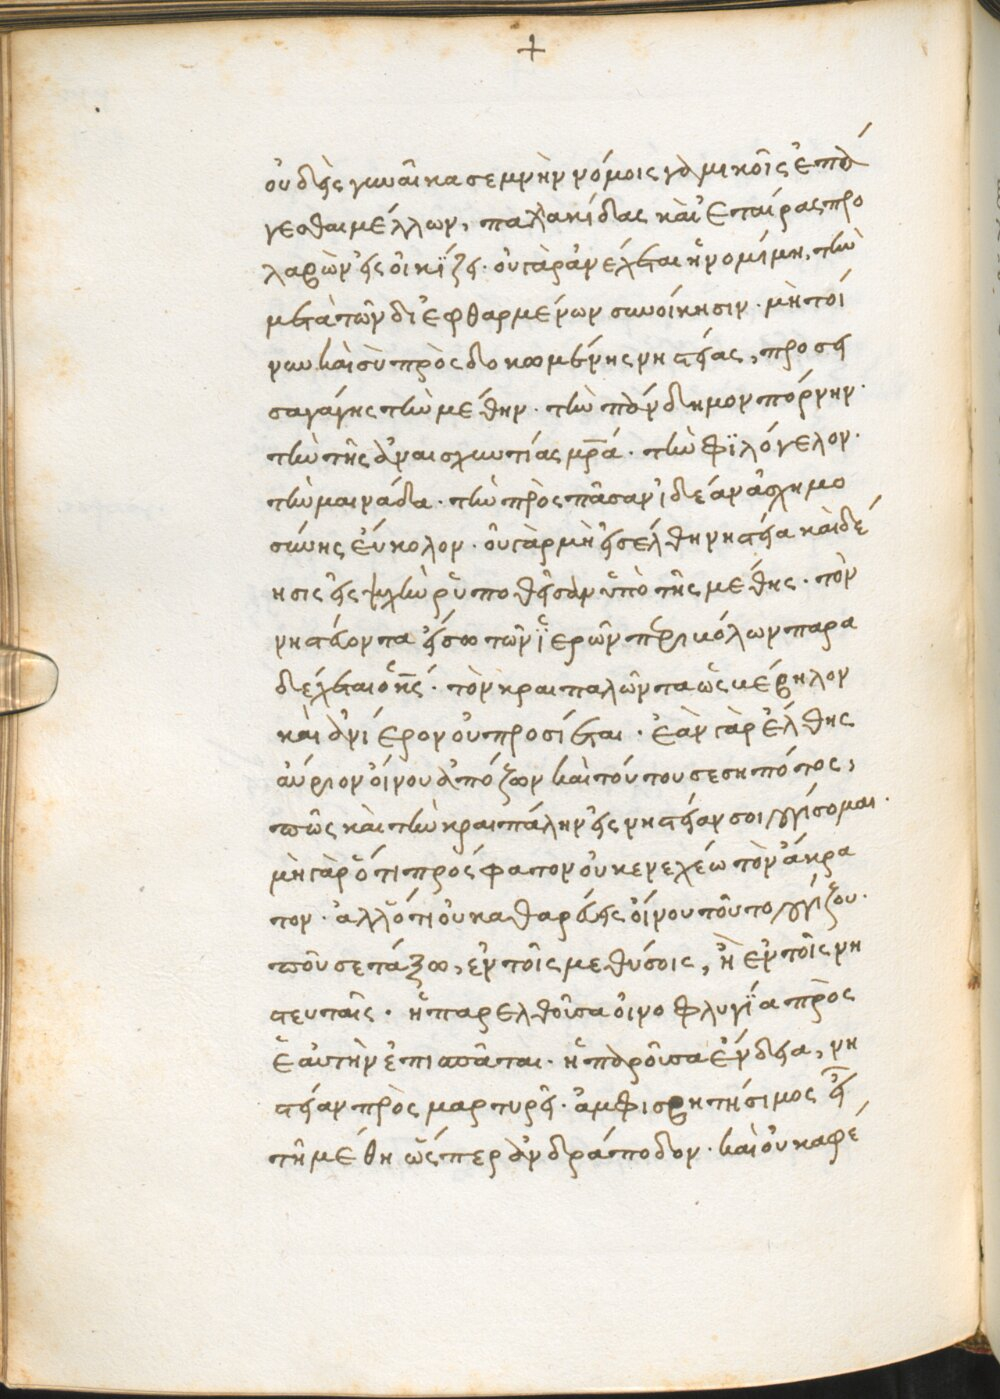 +
οὐδεὶς γυναῖκα σεμνὴν νόμοις γαμικοῖς ἐπά
γεσθαι μέλλων, παλλακίδας καὶ ἑταίρας προ
λαβὼν εἰσοικίζει. οὐ γὰρ ἀνέχεται ἡ νομίμη, τὴν
μετὰ τῶν διεφθαρμένων συνοίκησιν. μὴ τοί
νυν καὶ σὺ προσδοκωμένης νηστείας, προσει
σαγάγῃς τὴν μέθην. τὴν πάνδημον πόρνην.
τὴν τῆς ἀναισχυντίας μρ̅α. τὴν φιλόγελον.
τὴν μαινάδα. τὴν πρὸς πᾶσαν ἰδέαν ἀσχημο
σύνης εὔκολον. οὐ γὰρ μὴ εἰσέλθῃ νηστεία καὶ δέ
ησις εἰς ψυχὴν ῥυπωθεῖσαν ὑπὸ τῆς μέθης. τὸν
νηστεύοντα εἴσω τῶν ἱερῶν περιβόλων παρα
δέχεται ὁ κς̅. τὸν κραιπαλῶντα ὡς βέβηλον
καὶ ἀνίερον οὐ προσίεται. ἐὰν γὰρ ἔλθῃς
αὔριον οἴνου ἀπόζων καὶ τούτου σεσηπότος,
πῶς καὶ τὴν κραιπάλην εἰς νηστείαν σοι λογίσομαι.
μὴ γὰρ ὅτι πρόσφατον οὐκ ἐνεχέω τὸν ἄκρα
τον. ἀλλ' ὅτι οὐ καθαρεύεις οἴνου τοῦτο λογίζου.
ποῦ σε τάξω, ἐν τοῖς μεθύσοις, ἢ ἐν τοῖς νη
στευταῖς. ἡ παρελθοῦσα οἰνοφλυγία πρὸς
ἑαυτὴν ἐπισπᾶται. ἡ παροῦσα ἔνδεια, νη
στείαν προσμαρτυρεῖ. ἀμφισβητήσιμος εἶ
τῇ μέθῃ ὥσπερ ἀνδράποδον. καὶ οὐκ ἀφέ